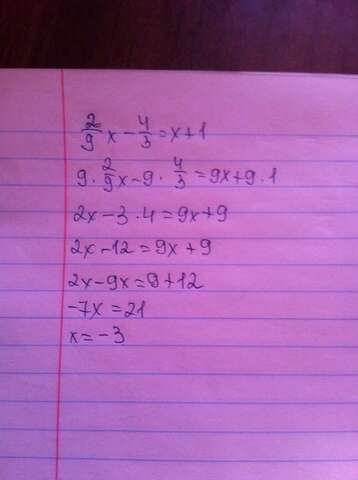 2/9 x - 4/3 = x + 1
9 · 2/9 x - 9 · 4/3 = 9x + 9 · 1
2x - 3 · 4 = 9x + 9
2x - 12 = 9x + 9
2x - 9x = 9 + 12
-7x = 21
x = -3